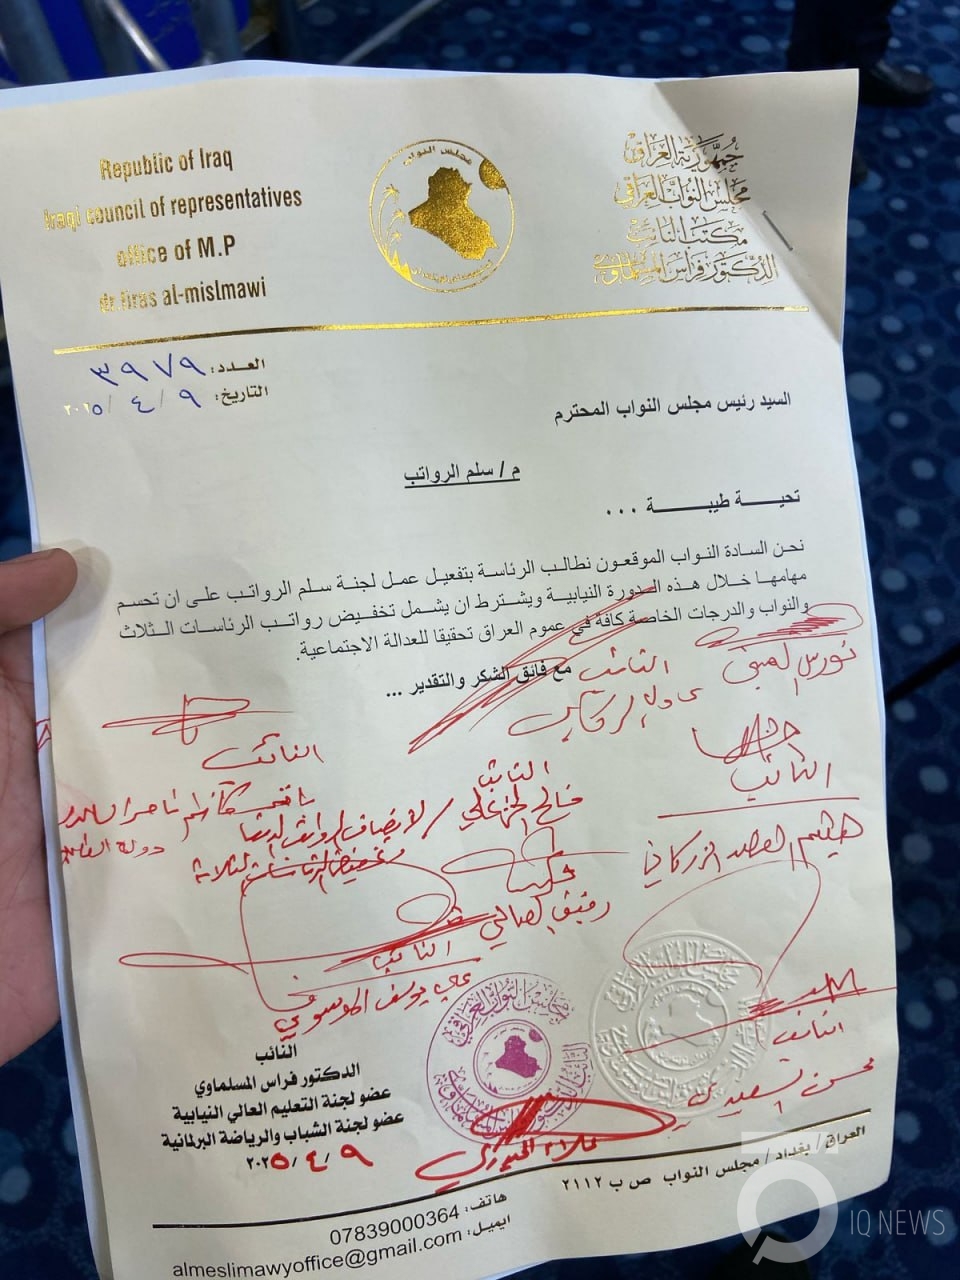 Republic of Iraq
Iraqi council of representatives
office of M.P
dr.firas al-mislmawi
مجلس النواب
جمهورية العراق
مجلس النواب العراقي
مكتب النائب
الدكتور فراس المسلماوي
العدد: ٣٩٧٩
التاريخ: ٩ / ٤ / ٢٠٢٥
السيد رئيس مجلس النواب المحترم
م / سلم الرواتب
تحيـــة طيبـــة ...
نحن السادة النواب الموقعون نطالب الرئاسة بتفعيل عمل لجنة سلم الرواتب على ان تحسم
مهامها خلال هذه الدورة النيابية ويشترط ان يشمل تخفيض رواتب الرئاسات الثلاث
والنواب والدرجات الخاصة كافة في عموم العراق تحقيقا للعدالة الاجتماعية.
مع فائق الشكر والتقدير ...
النائب
النائب
النائب
النائب
فالح الخزعلي
هيثم الزركاني
رفيق الصالحي
النائب
علي يوسف الموسوي
النائب
محسن السعيدي
النائب
الدكتور فراس المسلماوي
عضو لجنة التعليم العالي النيابية
عضو لجنة الشباب والرياضة البرلمانية
٩ / ٤ / ٢٠٢٥
العراق / بغداد / مجلس النواب ص ب ٢١١٢
هاتف: 07839000364
ايميل: almeslimawyoffice@gmail.com
IQ NEWS